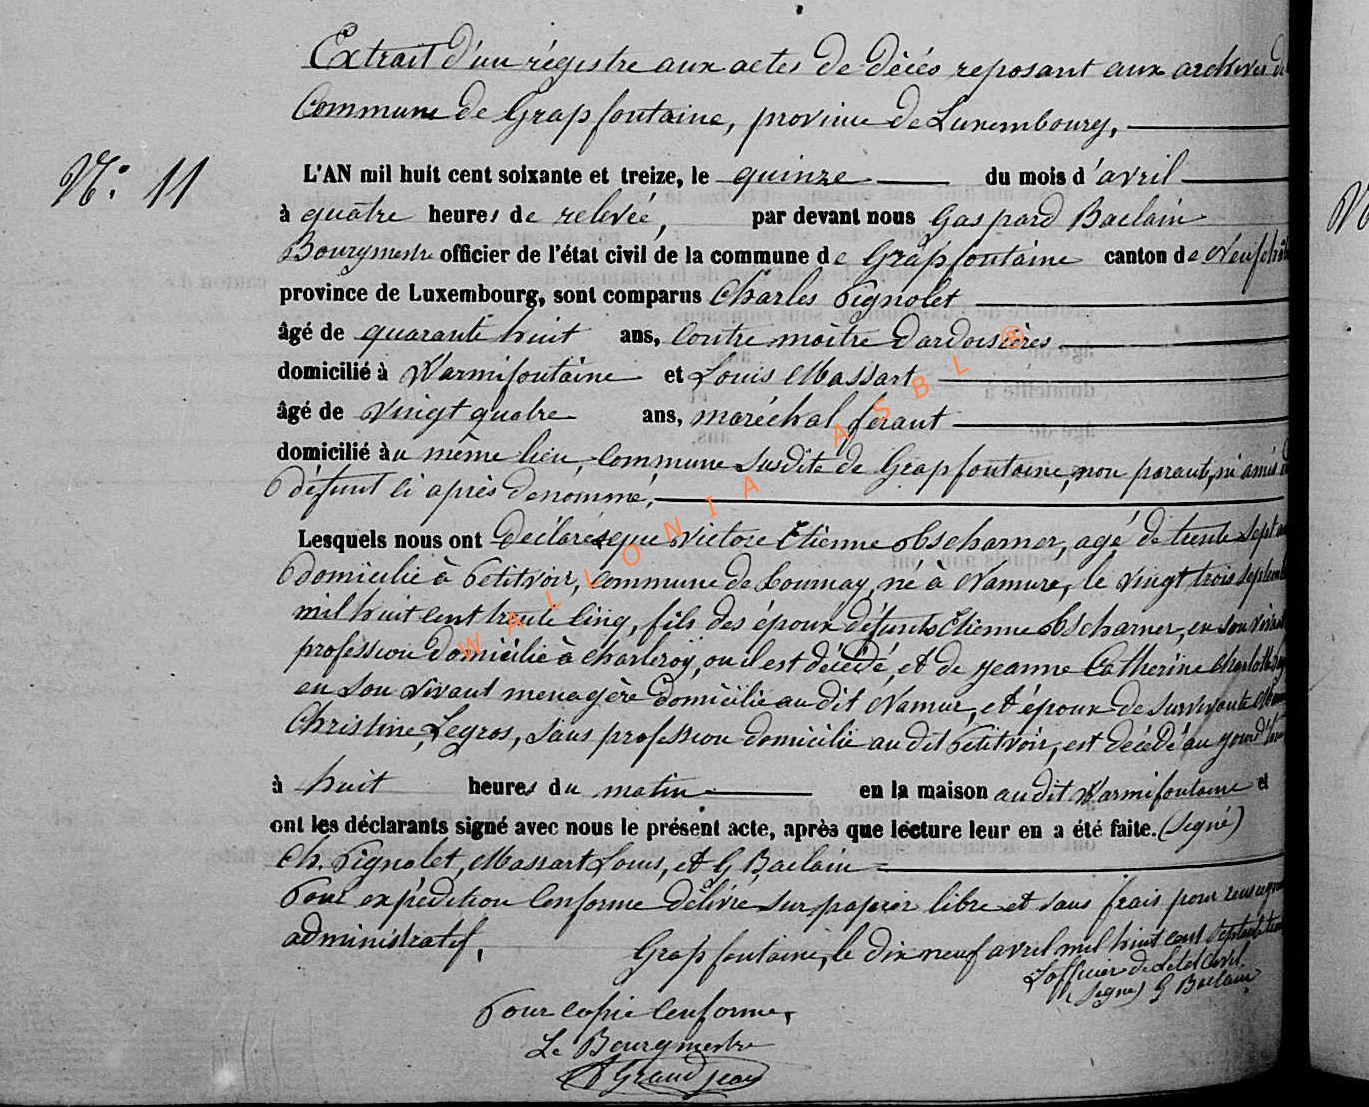 Extrait d'un régistre aux actes de décés reposant aux archives de
Commune de Grapfontaine, province de Luxembourg,
N° 11
L'AN mil huit cent soixante et treize, le quinze du mois d'avril
à quatre heures de relevée, par devant nous Gaspard Baclain
Bourgmestre officier de l'état civil de la commune de Grapfontaine canton de Neufchât
province de Luxembourg, sont comparus Charles Pignolet
âgé de quarante huit ans, contre maître d'ardoisières
domicilié à Warmifontaine et Louis Massart
âgé de vingt quatre ans, maréchal feraut
domicilié au même lieu, commune susdite de Grapfontaine, non parauts, ni amis d
défunt ci après denommé,
Lesquels nous ont déclarés que Victore Etienne Obscharner, agé de trente sept an
domicilié à Petitvoir, commune de Tournay, né à Namure, le vingt trois septemb
mil huit cent trente cinq, fils des époux défunts Etienne Obscharner, en son vivant
profession domicilié à Charleroy, ou il est décédé, et de Jeanne Catherine Charlotte
en son vivant menagère domicilié au dit Namur, et époux de survivante
Christine Legros, sans profession domicilié au dit Petitvoir, est décédé au jourd'hui
à huit heures du matin en la maison au dit Warmifontaine et
ont les déclarants signé avec nous le présent acte, après que lecture leur en a été faite. (Signé)
Ch. Pignolet, Massart Louis, et G Baclain
Pour expédition conforme délivré sur papier libre et sans frais pour renseign
administratif,
Grapfontaine, le dix neuf avril mil huit cent septante trois
L'officier de l'état civil
(Signé) G Baclain
Pour copie conforme,
Le Bourgmestre
Grandjean
WALLONIA ASBL ®